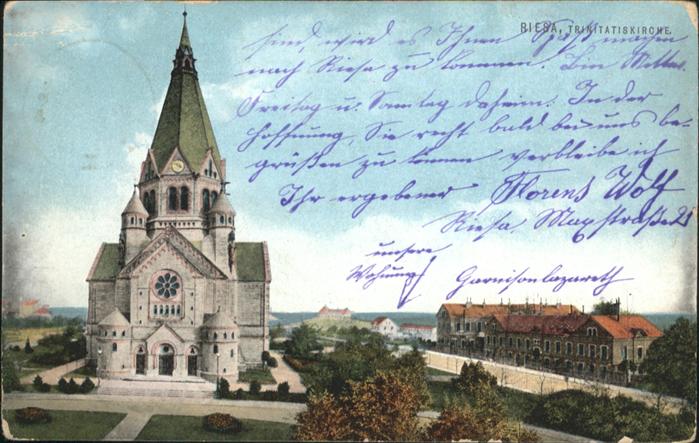 RIESA, TRINITATISKIRCHE.
sind, wird es Ihnen Spaß machen
nach Riesa zu kommen. Bin Mittw.
Freitag u. Samstag daheim. In der
Hoffnung, Sie recht bald bei uns be-
grüßen zu können verbleibe ich
Ihr ergebener Florens Wolf
Riesa,
unsere
Wohnung
Garnisonlazareth